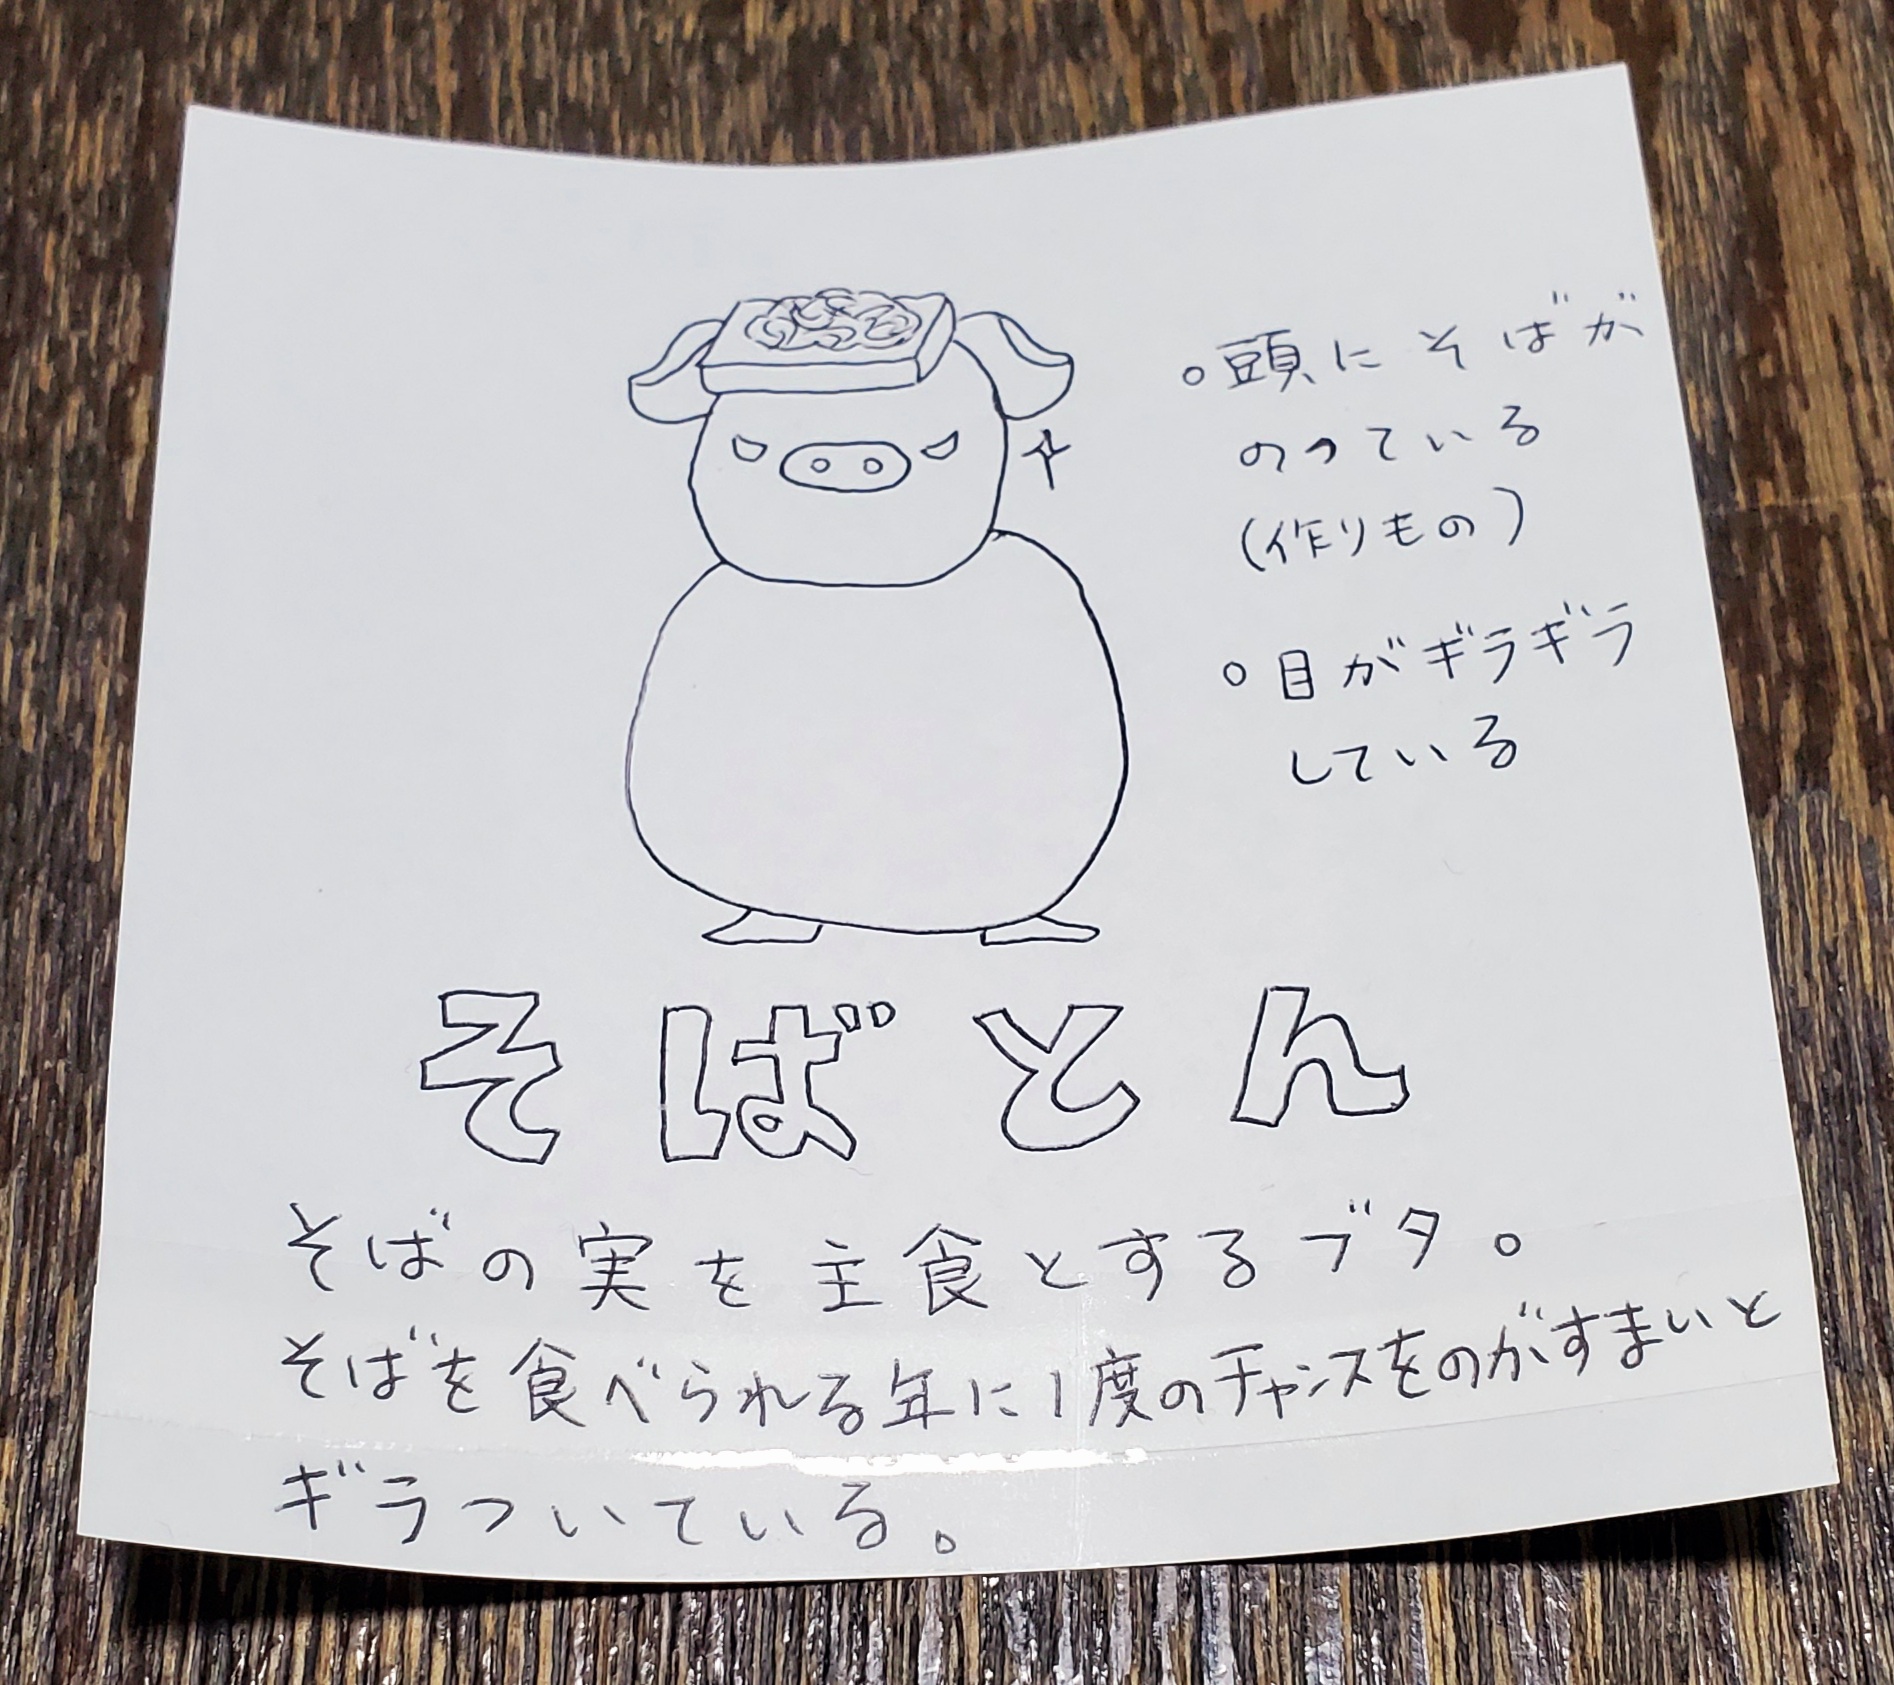 ○頭にそばが
のっている
(作りもの)
○目がギラギラ
している
そばとん
そばの実を主食とするブタ。
そばを食べられる年に1度のチャンスをのがすまいと
ギラついている。